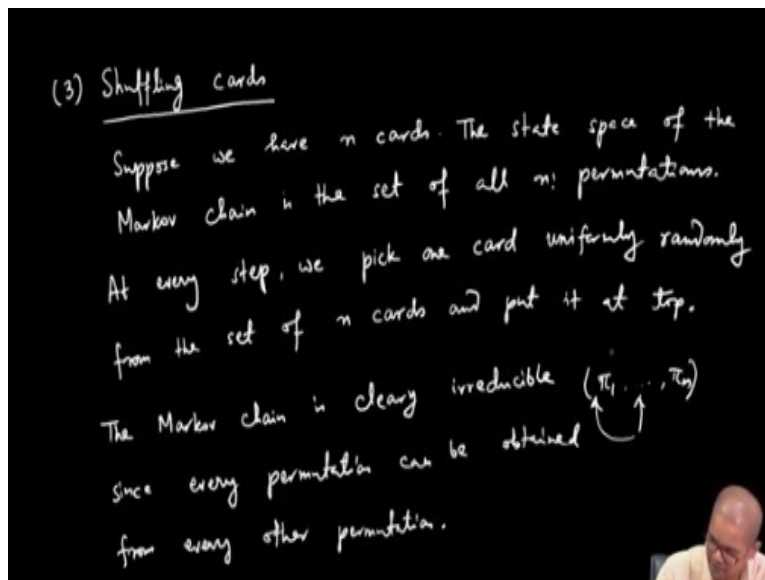 (3) Shuffling cards
Suppose we have n cards. The state space of the
Markov chain is the set of all n! permutations.
At every step, we pick one card uniformly randomly
from the set of n cards and put it at top.
The Markov chain is cleary irreducible (π₁, ..., πₙ)
since every permutation can be obtained
from every other permutation.